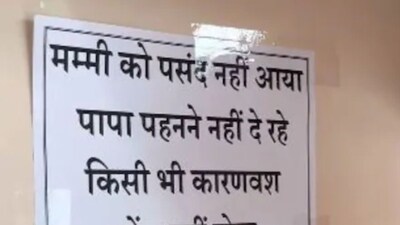 मम्मी को पसंद नहीं आया
पापा पहनने नहीं दे रहे
किसी भी कारणवश